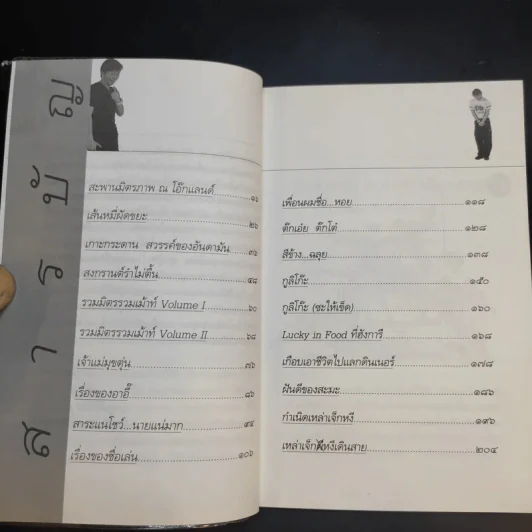 สารบัญ
สะพานมิตรภาพ ณ โอ๊กแลนด์................๑๖
เส้นหมี่ผัดขยะ................๒๖
เกาะกระดาน สวรรค์ของอันดามัน................๓๖
สงกรานต์รำไม่ตื้น................๔๘
รวมมิตรรวมเม้าท์ Volume I................๖๐
รวมมิตรรวมเม้าท์ Volume II................๖๘
เจ้าแม่มุขตุ่น................๗๖
เรื่องของอาอี๊................๘๖
สาระแนโชว์...นายแน่มาก................๙๔
เรื่องของชื่อเล่น................๑๐๖
เพื่อนผมชื่อ...หอย................๑๑๘
ตึกเอ๋ย ตึกโต๋................๑๒๘
สีข้าง...ฉลุย................๑๓๘
กูลิโก๊ะ................๑๕๐
กูลิโก๊ะ (ซะให้เข็ด)................๑๖๐
Lucky in Food ที่ฮังการี................๑๖๘
เกือบเอาชีวิตไปแลกดินเนอร์................๑๗๘
ฝันดีของสะมะ................๑๘๖
กำเนิดเหล่าเจ็กหงี................๑๙๖
เหล่าเจ็กหงีเดินสาย................๒๐๔